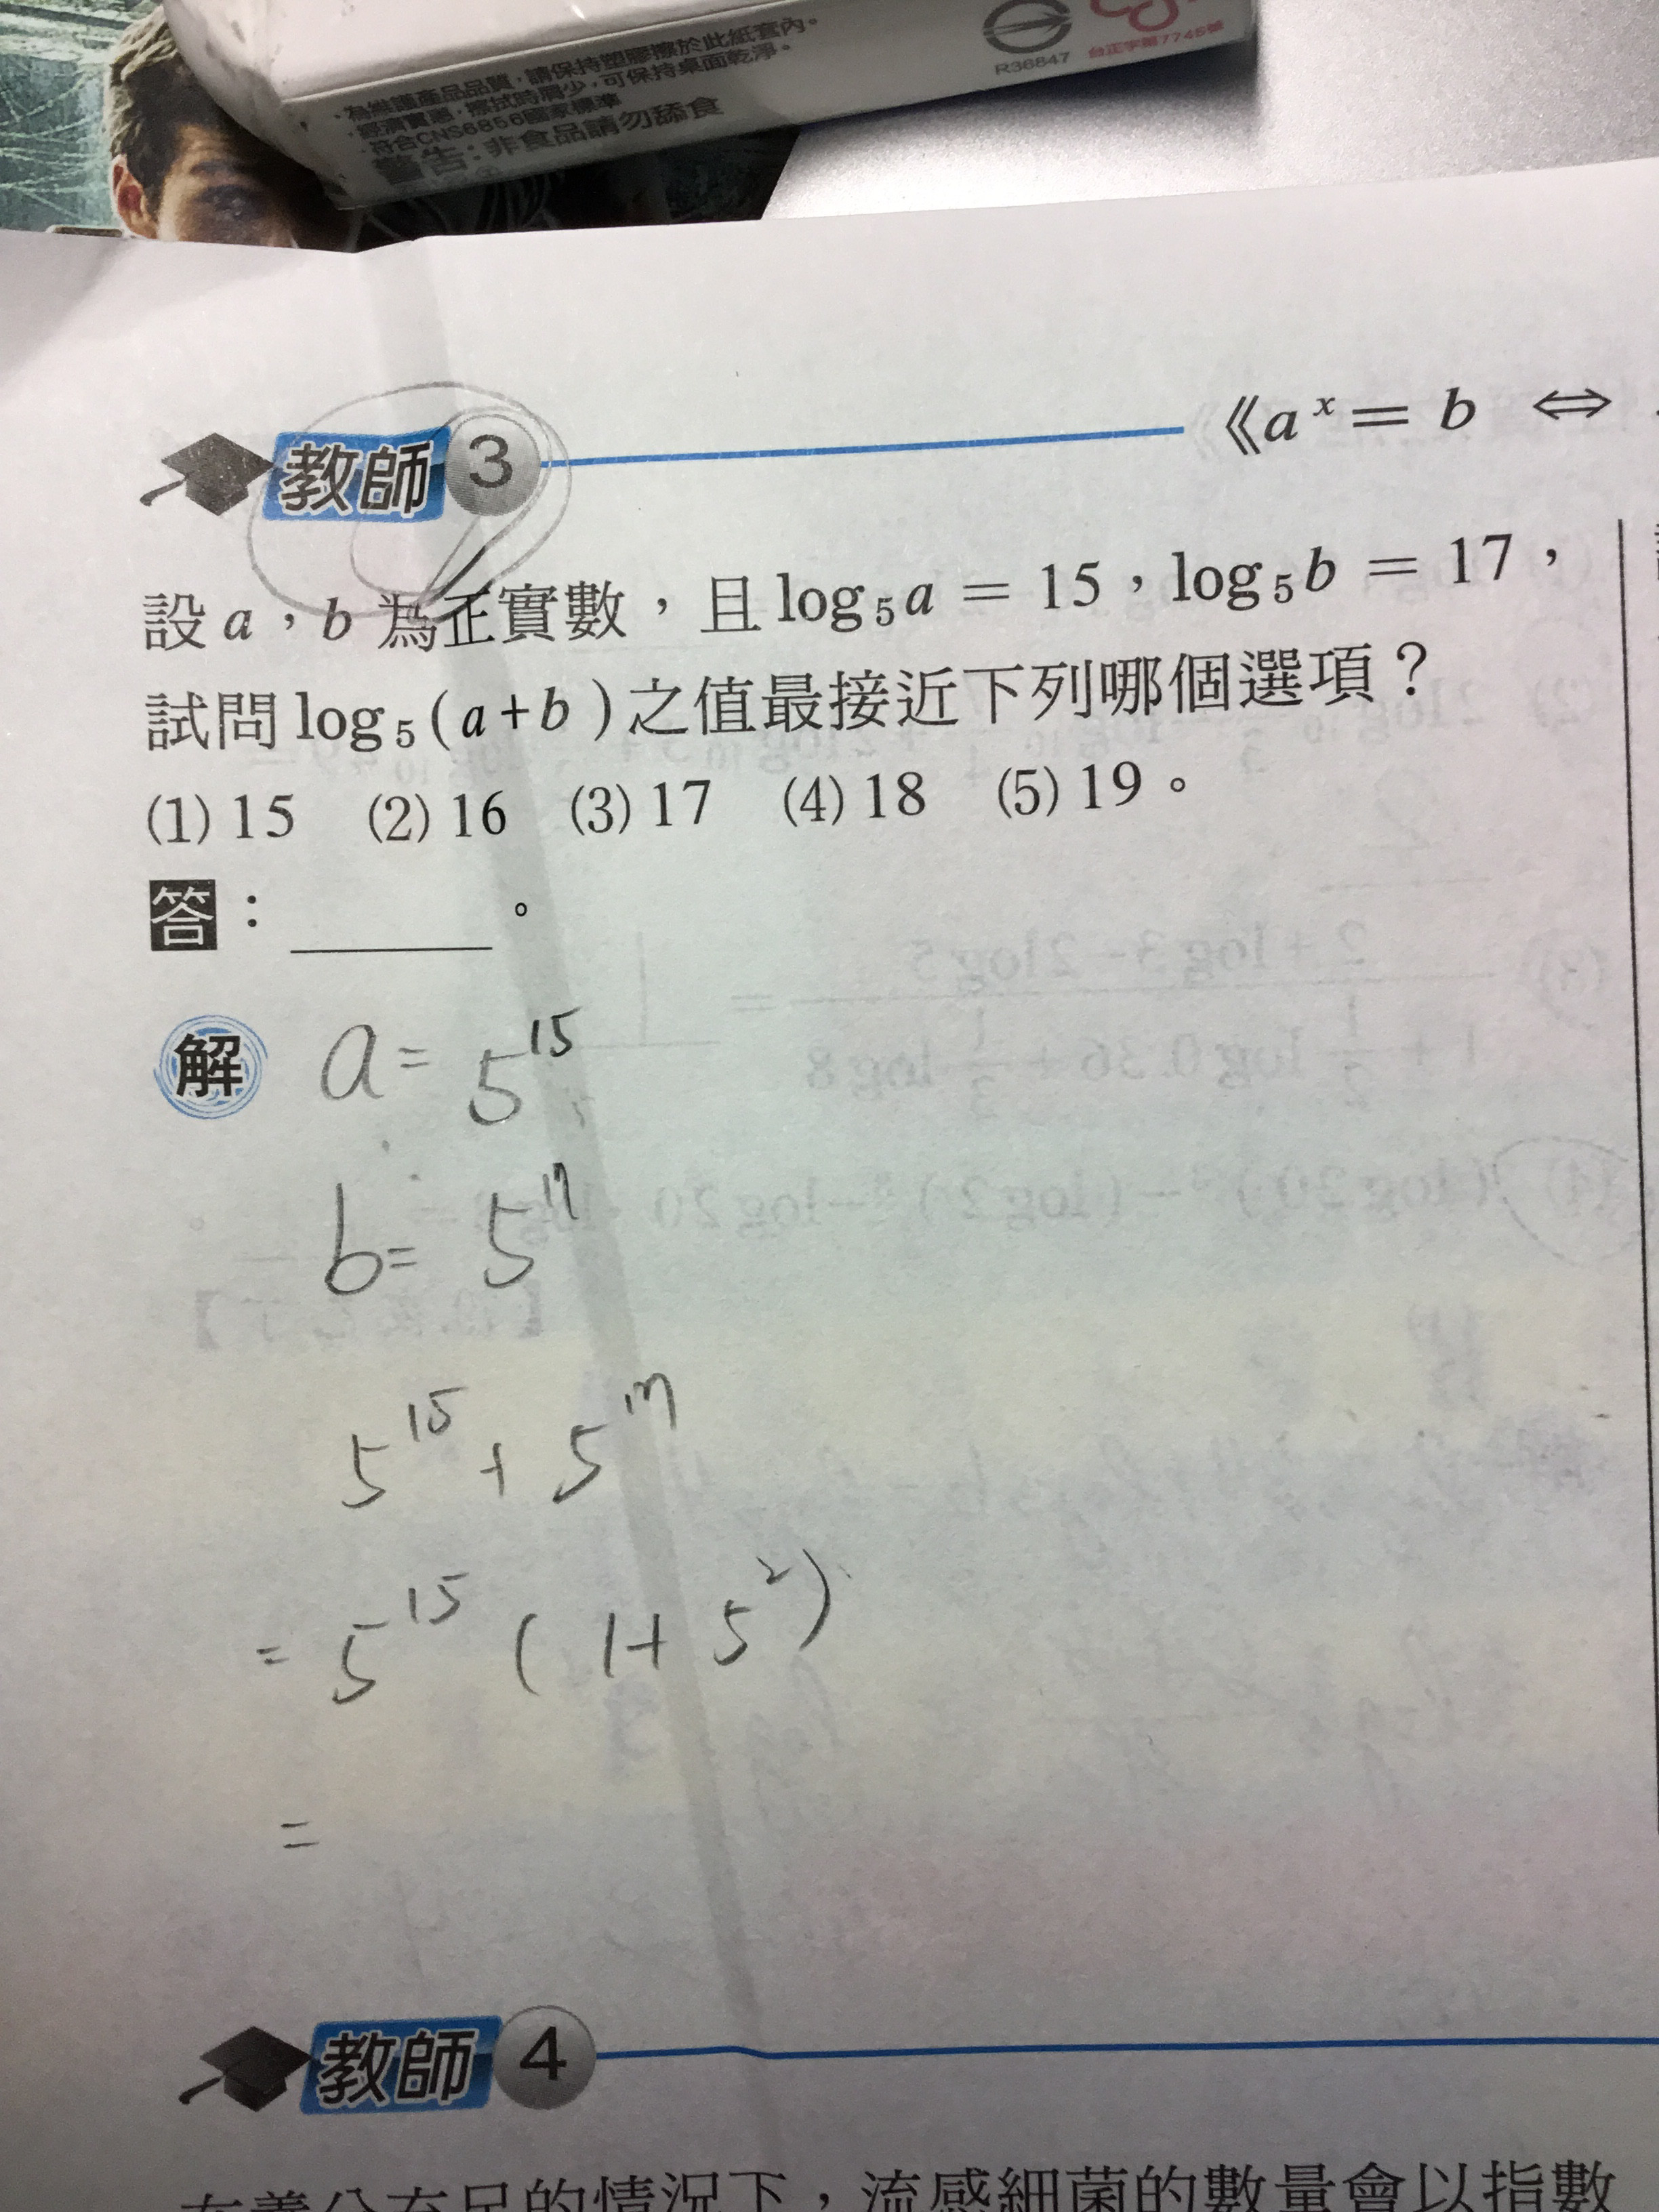 ·為維護產品品質,請保持塑膠擦於此紙套內。
·經濟實惠,擦拭時屑少,可保持桌面乾淨。
·符合CNS6856國家標準
警告:非食品請勿舔食
R36847
台正字第7745號
教師 3 《aˣ = b ⇔
設 a,b 為正實數,且 log₅a = 15,log₅b = 17,
試問 log₅(a+b) 之值最接近下列哪個選項?
(1) 15 (2) 16 (3) 17 (4) 18 (5) 19。
答:______。
解 a = 5¹⁵
b = 5¹⁷
5¹⁵ + 5¹⁷
= 5¹⁵ (1+5²)
=
教師 4
在養分充足的情況下,流感細菌的數量會以指數